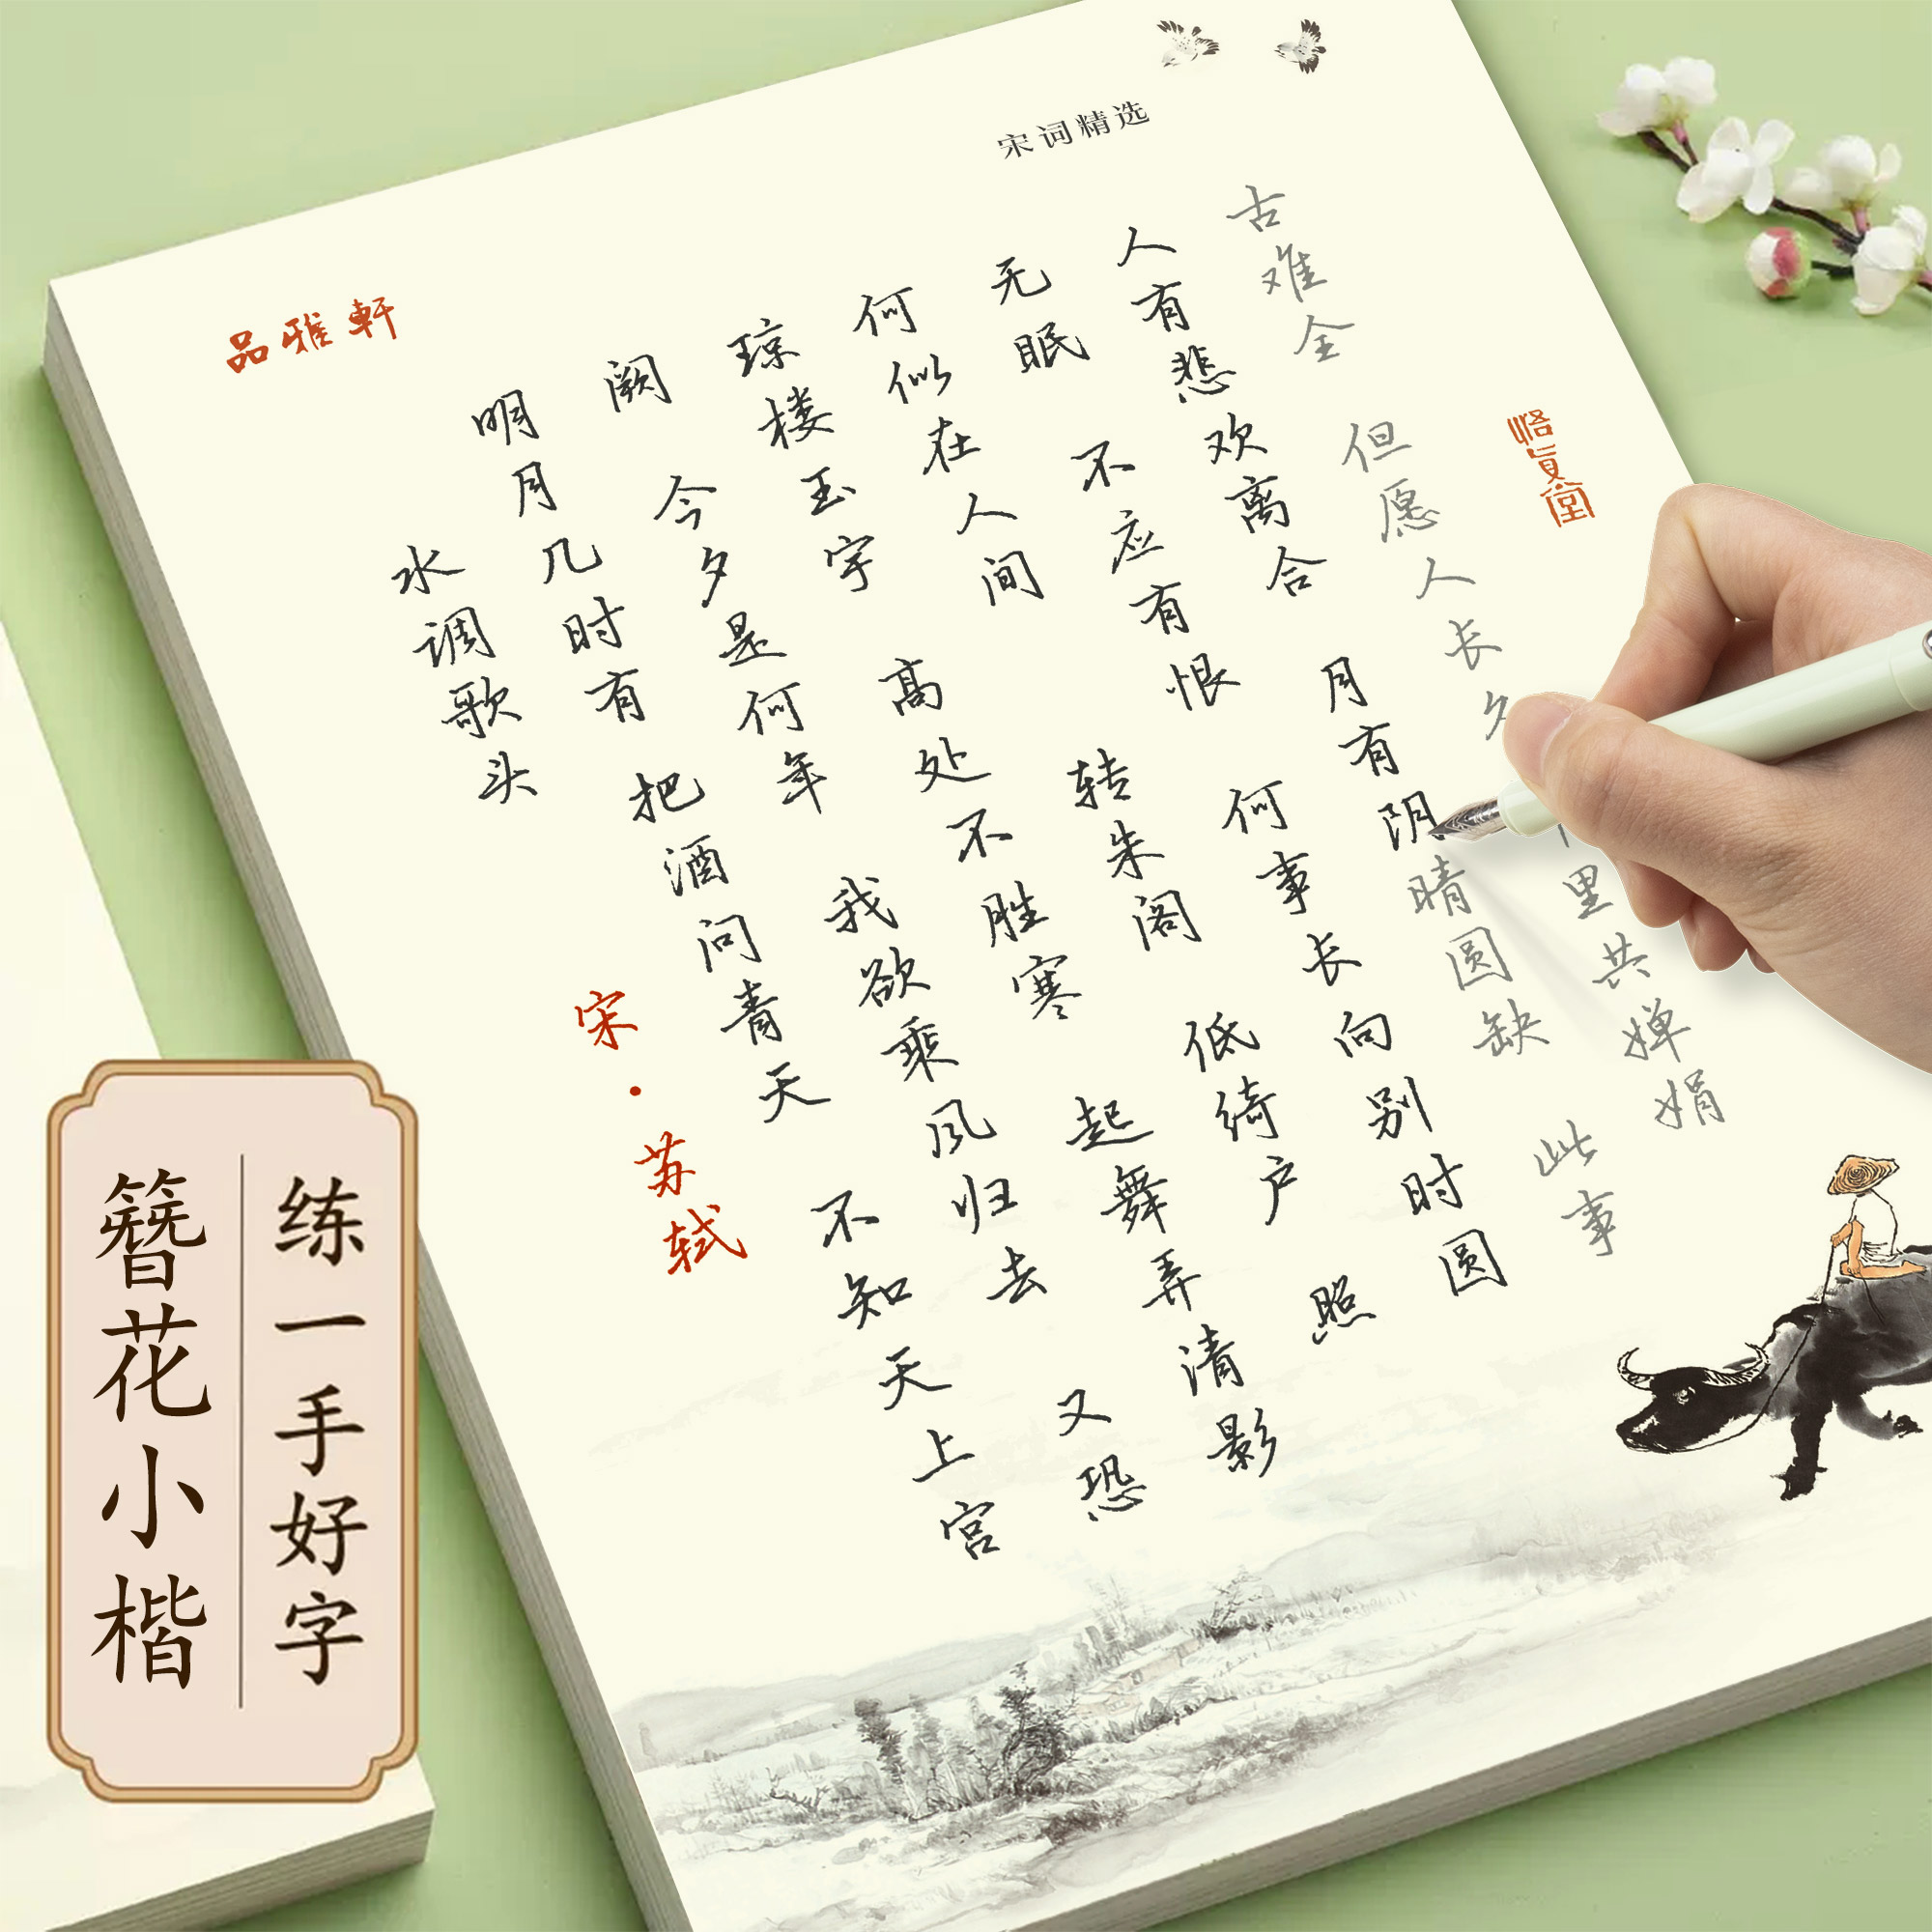 宋词精选
品雅軒
水调歌头 宋·苏轼
明月几时有 把酒问青天 不知天上宫
阙 今夕是何年 我欲乘风归去 又恐
琼楼玉宇 高处不胜寒 起舞弄清影
何似在人间 转朱阁 低绮户 照
无眠 不应有恨 何事长向别时圆
人有悲欢离合 月有阴晴圆缺 此事
古难全 但愿人长久 里共婵娟
练一手好字
簪花小楷